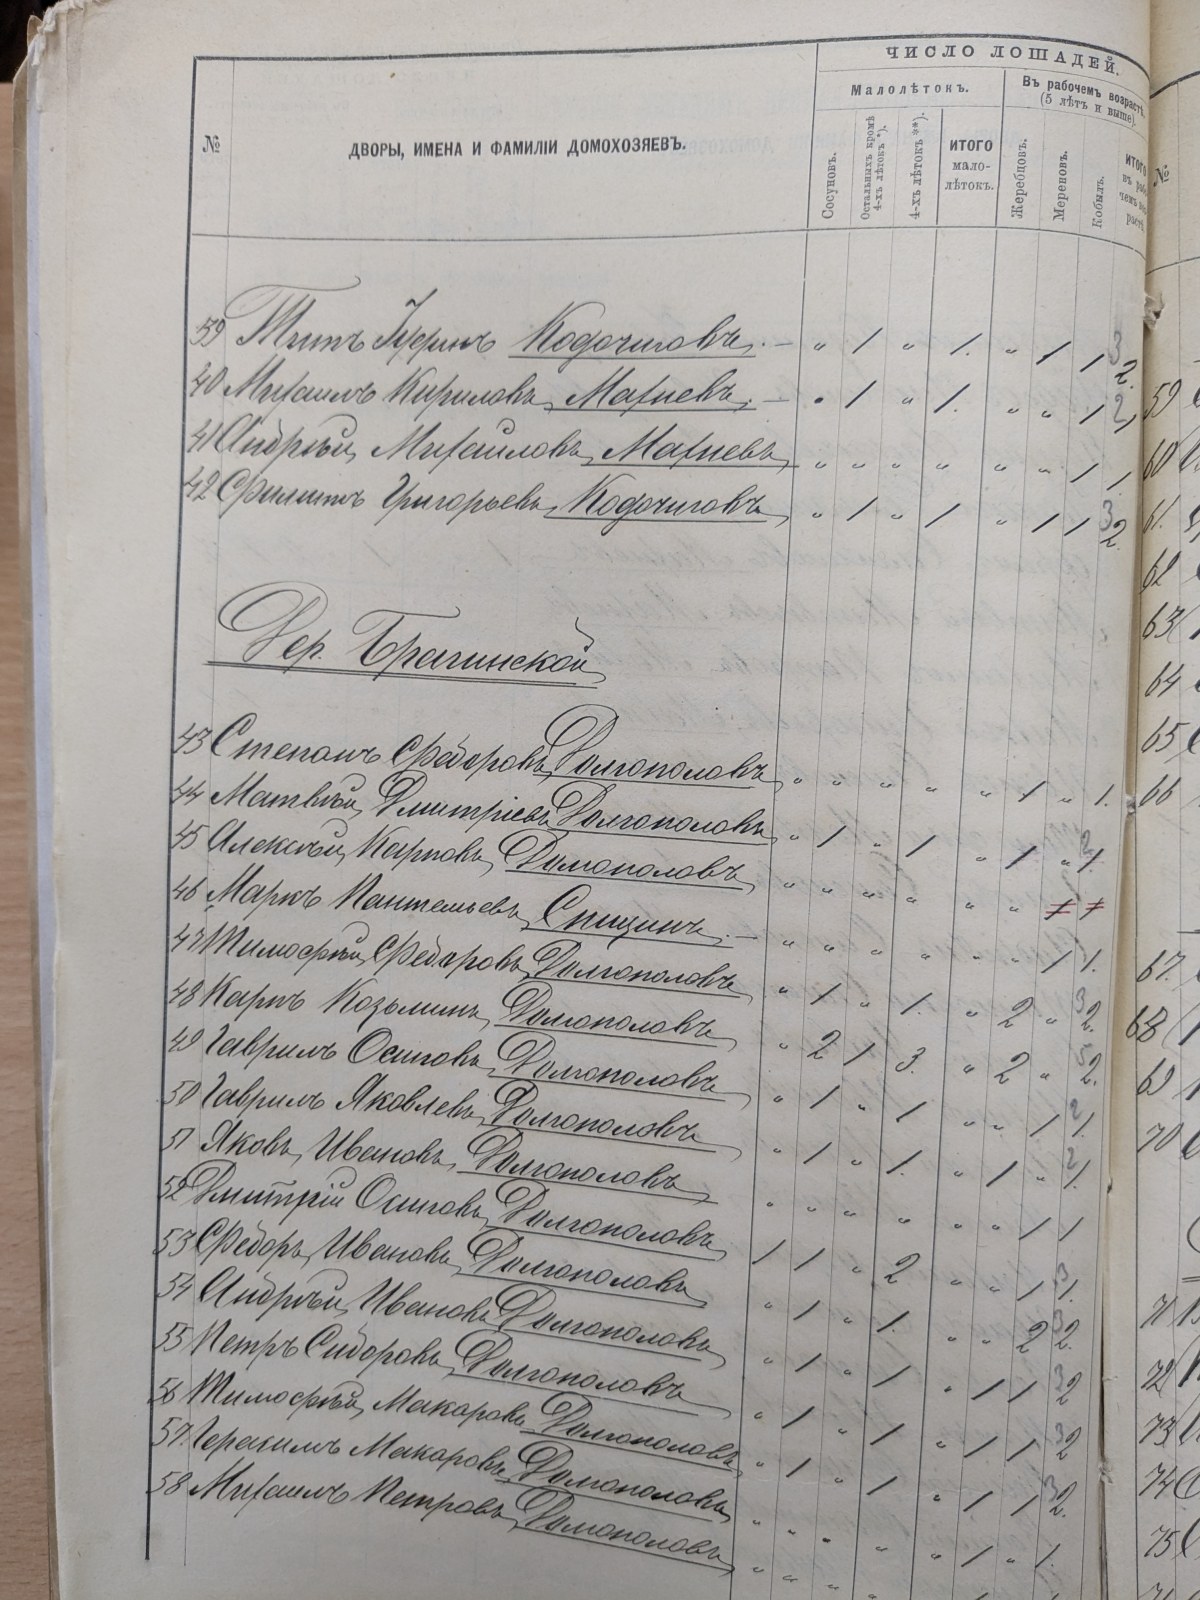 ЧИСЛО ЛОШАДЕЙ.
№
ДВОРЫ, ИМЕНА И ФАМИЛІИ ДОМОХОЗЯЕВЪ.
Малолѣтокъ.
Въ рабочемъ возрастѣ.
(5 лѣтъ и выше).
Сосуновъ.
Остальныхъ кромѣ 4-хъ лѣтокъ *).
4-хъ лѣтокъ **).
ИТОГО мало-лѣтокъ.
Жеребцовъ.
Мереновъ.
Кобылъ.
ИТОГО
39 Кодочиговъ. „ 1 „ 1. „ 1 1 3 2.
40 Михаилъ Кириловъ Махневъ. „ 1 „ 1. „ „ 1 2 1
41 Андрѣй Михайловъ Махневъ „ „ „ „ „ „ 1 1.
42 Филиппъ Григорьевъ Кодочиговъ „ 1 „ 1 „ 1 1 3 2.
Дер. Брагинской
43 Степанъ Федоровъ Долгополовъ „ „ „ „ „ 1 „ 1.
44 Матвѣй Дмитріевъ Долгополовъ „ 1 „ 1 „ 1 „ 2 1.
45 Алексѣй Карповъ Долгополовъ „ „ „ „ „ „
46 Маркъ Пантельевъ Спицинъ. „ „ „ „ „ „ 1 1.
47 Тимофѣй Федоровъ Долгополовъ „ 1 „ 1. „ 2 „ 3 2.
48 Карпъ Козьминъ Долгополовъ „ 2 1 3. „ 2 „ 5 2.
49 Гаврилъ Осиповъ Долгополовъ „ 1 „ 1 „ „ 1 2 1.
50 Гаврилъ Яковлевъ Долгополовъ „ 1 „ 1. „ 1 „ 2 1.
51 Яковъ Ивановъ Долгополовъ „ „ „ „ „ „ 1 1
52 Дмитрій Осиповъ Долгополовъ 1 1 „ 2 „ „ 1 3 1.
53 Федоръ Ивановъ Долгополовъ „ 1 „ 1. „ „ 2 3 2.
54 Андрѣй Ивановъ Долгополовъ „ 1 „ 1 „ 1 1 3 2
55 Петръ Сидоровъ Долгополовъ „ 1 „ 1 „ 1 1 3 2
56 Тимофѣй Макаровъ Долгополовъ „ 1 „ 1 „ 1 1 3 2.
57. Герасимъ Макаровъ Долгополовъ „ „ „ „ „ 1 „ 1.
58 Михаилъ Петровъ Долгополовъ „ „ „ „
№
59
60
61.
62
63
64
65
66
67.
68
69
70
71
72
73
74
75